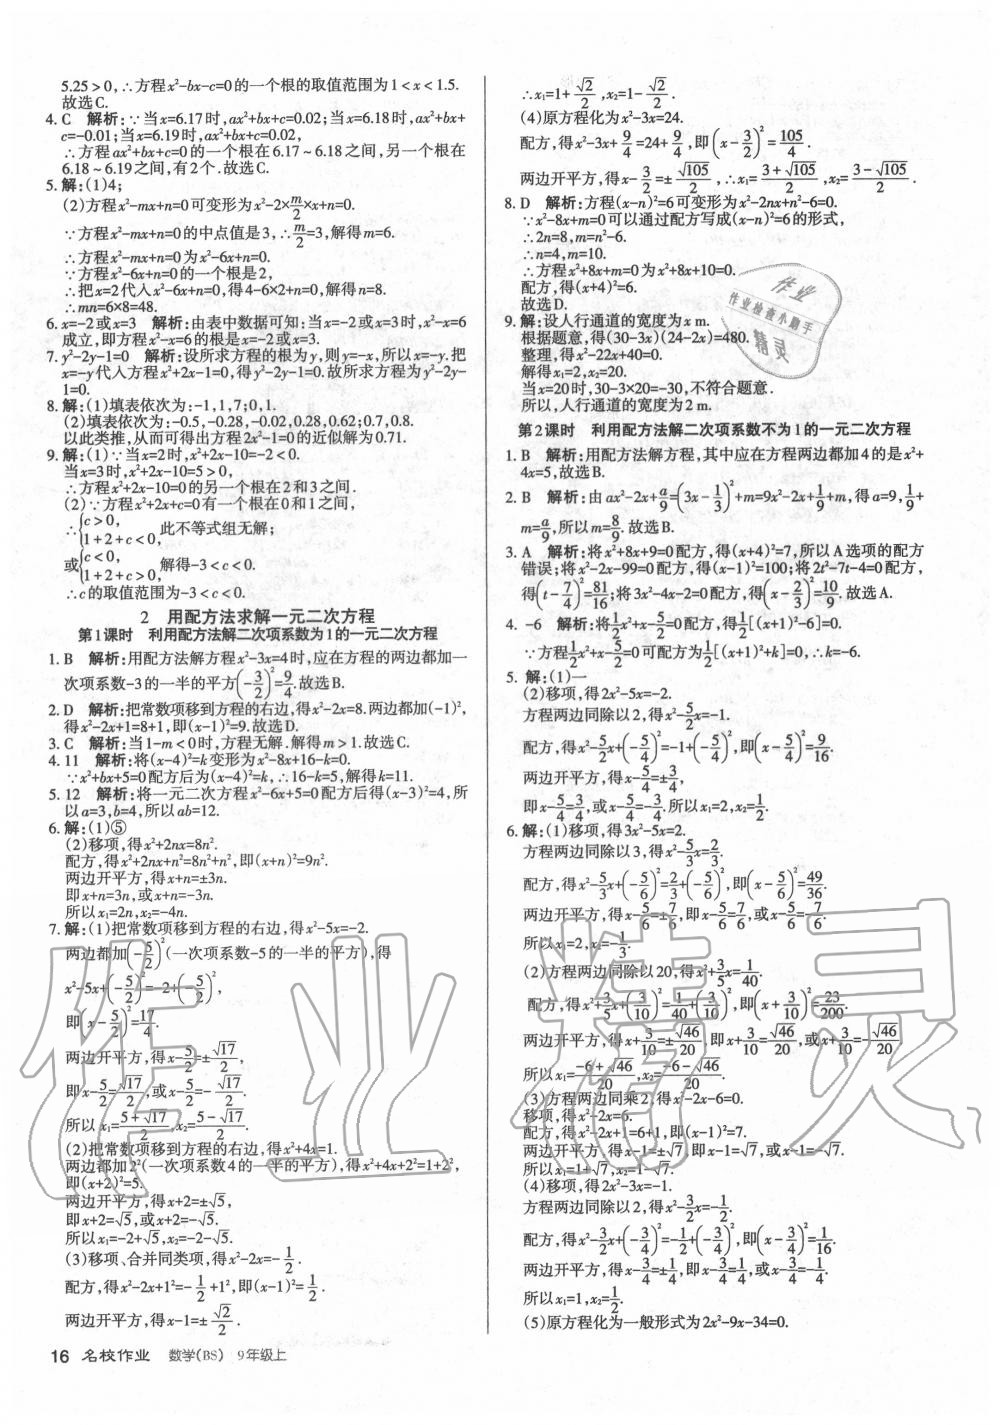 5.25＞0,∴方程x²-bx-c=0的一个根的取值范围为1＜x＜1.5.
故选C.
4. C 解析:∵当x=6.17时,ax²+bx+c=0.02;当x=6.18时,ax²+bx+
c=-0.01;当x=6.19时,ax²+bx+c=0.02,
∴方程ax²+bx+c=0的一个根在6.17～6.18之间,另一个根在
6.18～6.19之间,有2个.故选C.
5. 解:(1)4;
(2)方程x²-mx+n=0可变形为x²-2×m/2×x+n=0.
∵方程x²-mx+n=0的中点值是3,∴m/2=3,解得m=6.
∴方程x²-mx+n=0为x²-6x+n=0.
∵方程x²-6x+n=0的一个根是2,
∴把x=2代入x²-6x+n=0,得4-6×2+n=0,解得n=8.
∴mn=6×8=48.
6. x=-2或x=3 解析:由表中数据可知:当x=-2或x=3时,x²-x=6
成立,即方程x²-x=6的根是x=-2或x=3.
7. y²-2y-1=0 解析:设所求方程的根为y,则y=-x,所以x=-y.把
x=-y代入方程x²+2x-1=0,得y²-2y-1=0.故所求方程为y²-2y-
1=0.
8. 解:(1)填表依次为:-1,1,7;0,1.
(2)填表依次为:-0.5,-0.28,-0.02,0.28,0.62;0.7,0.8.
以此类推,从而可得出方程2x²-1=0的近似解为0.71.
9. 解:(1)∵当x=2时,x²+2x-10=-2＜0.
当x=3时,x²+2x-10=5＞0,
∴方程x²+2x-10=0的另一个根在2和3之间.
(2)∵方程x²+2x+c=0有一个根在0和1之间,
∴{c＞0, 1+2+c＜0, 此不等式组无解;
或{c＜0, 1+2+c＞0, 解得-3＜c＜0.
∴c的取值范围为-3＜c＜0.
2 用配方法求解一元二次方程
第1课时 利用配方法解二次项系数为1的一元二次方程
1. B 解析:用配方法解方程x²-3x=4时,应在方程的两边都加一
次项系数-3的一半的平方(-3/2)²=9/4.故选B.
2. D 解析:把常数项移到方程的右边,得x²-2x=8.两边都加(-1)²,
得x²-2x+1=8+1,即(x-1)²=9.故选D.
3. C 解析:当1-m＜0时,方程无解.解得m＞1.故选C.
4. 11 解析:将(x-4)²=k变形为x²-8x+16-k=0.
∵x²+bx+5=0配方后为(x-4)²=k,∴16-k=5,解得k=11.
5. 12 解析:将一元二次方程x²-6x+5=0配方后得(x-3)²=4,所
以a=3,b=4,所以ab=12.
6. 解:(1)⑤
(2)移项,得x²+2nx=8n².
配方,得x²+2nx+n²=8n²+n²,即(x+n)²=9n².
两边开平方,得x+n=±3n.
即x+n=3n,或x+n=-3n.
所以x₁=2n,x₂=-4n.
7. 解:(1)把常数项移到方程的右边,得x²-5x=-2.
两边都加(-5/2)²(一次项系数-5的一半的平方),得
x²-5x+(-5/2)²=-2+(-5/2)²,
即(x-5/2)²=17/4.
两边开平方,得x-5/2=±√17/2,
即x-5/2=√17/2,或x-5/2=-√17/2.
所以x₁=(5+√17)/2,x₂=(5-√17)/2.
(2)把常数项移到方程的右边,得x²+4x=1.
两边都加2²(一次项系数4的一半的平方),得x²+4x+2²=1+2²,
即(x+2)²=5.
两边开平方,得x+2=±√5,
即x+2=√5,或x+2=-√5.
所以x₁=-2+√5,x₂=-2-√5.
(3)移项、合并同类项,得x²-2x=-1/2.
配方,得x²-2x+1²=-1/2+1²,即(x-1)²=1/2.
两边开平方,得x-1=±√2/2.
∴x₁=1+√2/2,x₂=1-√2/2.
(4)原方程化为x²-3x=24.
配方,得x²-3x+9/4=24+9/4,即(x-3/2)²=105/4.
两边开平方,得x-3/2=±√105/2,∴x₁=(3+√105)/2,x₂=(3-√105)/2.
8. D 解析:方程(x-n)²=6可变形为x²-2nx+n²-6=0.
∵x²-8x+m=0可以通过配方写成(x-n)²=6的形式,
∴2n=8,m=n²-6.
∴n=4,m=10.
∴方程x²+8x+m=0为x²+8x+10=0.
配方,得(x+4)²=6.
故选D.
9. 解:设人行通道的宽度为x m.
根据题意,得(30-3x)(24-2x)=480.
整理,得x²-22x+40=0.
解得x₁=2,x₂=20.
当x=20时,30-3×20=-30,不符合题意.
所以,人行通道的宽度为2 m.
第2课时 利用配方法解二次项系数不为1的一元二次方程
1. B 解析:用配方法解方程,其中应在方程两边都加4的是x²+
4x=5,故选B.
2. B 解析:由ax²-2x+a/9=(3x-1/3)²+m=9x²-2x+1/9+m,得a=9,1/9+
m=a/9,所以m=8/9.故选B.
3. A 解析:将x²+8x+9=0配方,得(x+4)²=7,所以A选项的配方
错误;将x²-2x-99=0配方,得(x-1)²=100;将2t²-7t-4=0配方,
得(t-7/4)²=81/16;将3x²-4x-2=0配方,得(x-2/3)²=10/9.故选A.
4. -6 解析:将1/2x²+x-5/2=0配方,得1/2[(x+1)²-6]=0.
∵方程1/2x²+x-5/2=0可配方为1/2[(x+1)²+k]=0,∴k=-6.
5. 解:(1)一
(2)移项,得2x²-5x=-2.
方程两边同除以2,得x²-5/2x=-1.
配方,得x²-5/2x+(-5/4)²=-1+(-5/4)²,即(x-5/4)²=9/16.
两边开平方,得x-5/4=±3/4,
即x-5/4=3/4,或x-5/4=-3/4.所以x₁=2,x₂=1/2.
6. 解:(1)移项,得3x²-5x=2.
方程两边同除以3,得x²-5/3x=2/3.
配方,得x²-5/3x+(-5/6)²=2/3+(-5/6)²,即(x-5/6)²=49/36.
两边开平方,得x-5/6=±7/6,即x-5/6=7/6,或x-5/6=-7/6.
所以x₁=2,x₂=-1/3.
(2)方程两边同除以20,得x²+3/5x=1/40.
配方,得x²+3/5x+(3/10)²=1/40+(3/10)²,即(x+3/10)²=23/200.
两边开平方,得x+3/10=±√46/20,即x+3/10=√46/20,或x+3/10=-√46/20.
所以x₁=(-6+√46)/20,x₂=(-6-√46)/20.
(3)方程两边同乘2,得x²-2x-6=0.
移项,得x²-2x=6.
配方,得x²-2x+1=6+1,即(x-1)²=7.
两边开平方,得x-1=±√7,即x-1=√7,或x-1=-√7.
所以x₁=1+√7,x₂=1-√7.
(4)移项,得2x²-3x=-1.
方程两边同除以2,得x²-3/2x=-1/2.
配方,得x²-3/2x+(-3/4)²=-1/2+(-3/4)²,即(x-3/4)²=1/16.
两边开平方,得x-3/4=±1/4,即x-3/4=1/4,或x-3/4=-1/4.
所以x₁=1,x₂=1/2.
(5)原方程化为一般形式为2x²-9x-34=0.
16 名校作业 数学(BS) 9年级上
作业
作业检查小助手
精灵
作业精灵